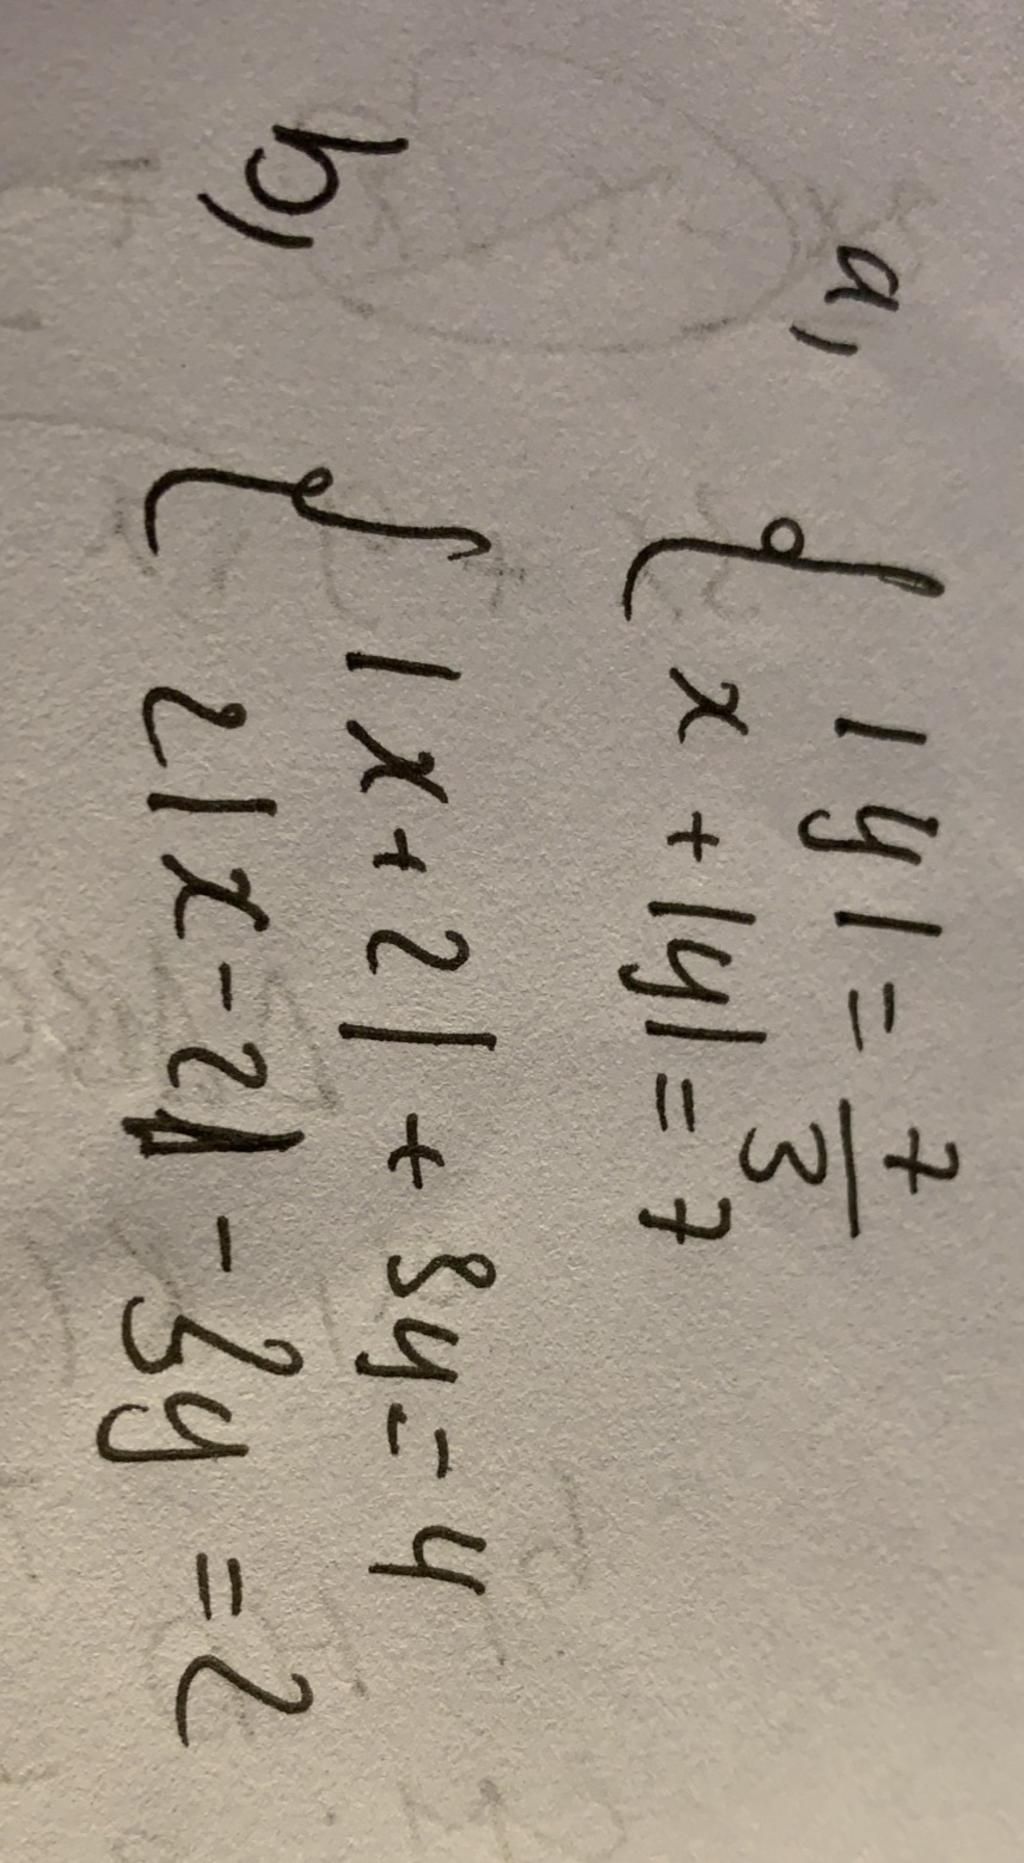 a) { |y| = 7/3
x + |y| = 7
b) { |x + 2| + 8y = 4
2|x - 2| - 3y = 2